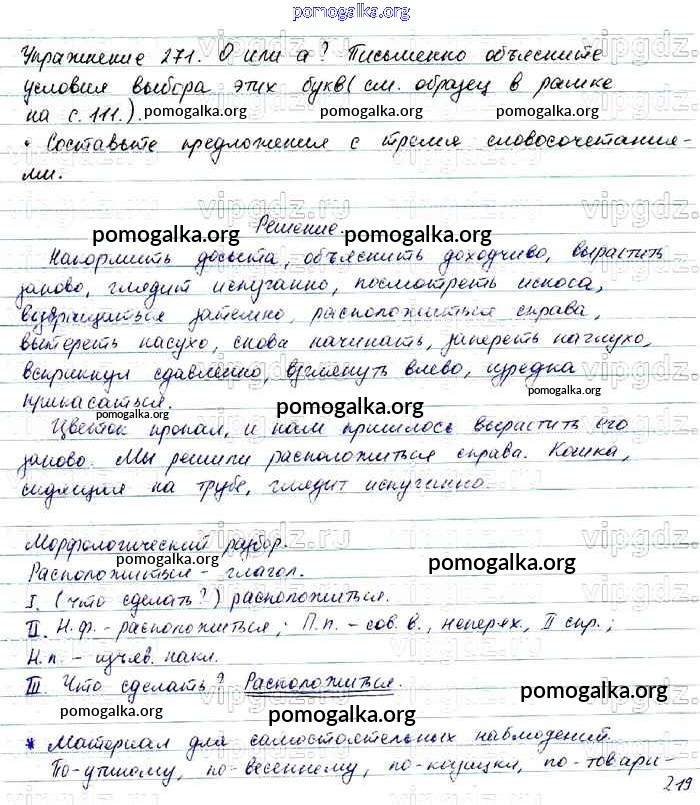 pomogalka.org
Упражнение 271. О или а? Письменно объясните
условия выбора этих букв (см. образец в рамке
на с. 111.).
pomogalka.org pomogalka.org pomogalka.org
• Составьте предложения с тремя словосочетания-
ми.
vipgdz.ru
Решение.
pomogalka.org pomogalka.org
Накормить досыта, объяснить доходчиво, вырастить
заново, глядит испуганно, посмотреть искоса,
возвращаться затемно, расположиться справа,
вытереть насухо, снова начинать, запереть наглухо,
вскрикнул сдавленно, взглянуть влево, изредка
прикасаться.
pomogalka.org pomogalka.org pomogalka.org
Цветок пропал, и нам пришлось вырастить его
заново. Мы решили расположиться справа. Кошка,
сидящая на трубе, глядит испуганно.
Морфологический разбор.
pomogalka.org pomogalka.org
Расположиться - глагол.
I. (что сделать?) расположиться.
II. Н.ф. - расположиться; П.п. - сов. в., неперех., II спр.;
Н.п. - изъяв. накл.
pomogalka.org
III. Что сделать? Расположиться.
pomogalka.org
pomogalka.org pomogalka.org pomogalka.org
* Материал для самостоятельных наблюдений.
По-утиному, по-весеннему, по-казацки, по-товари-
219